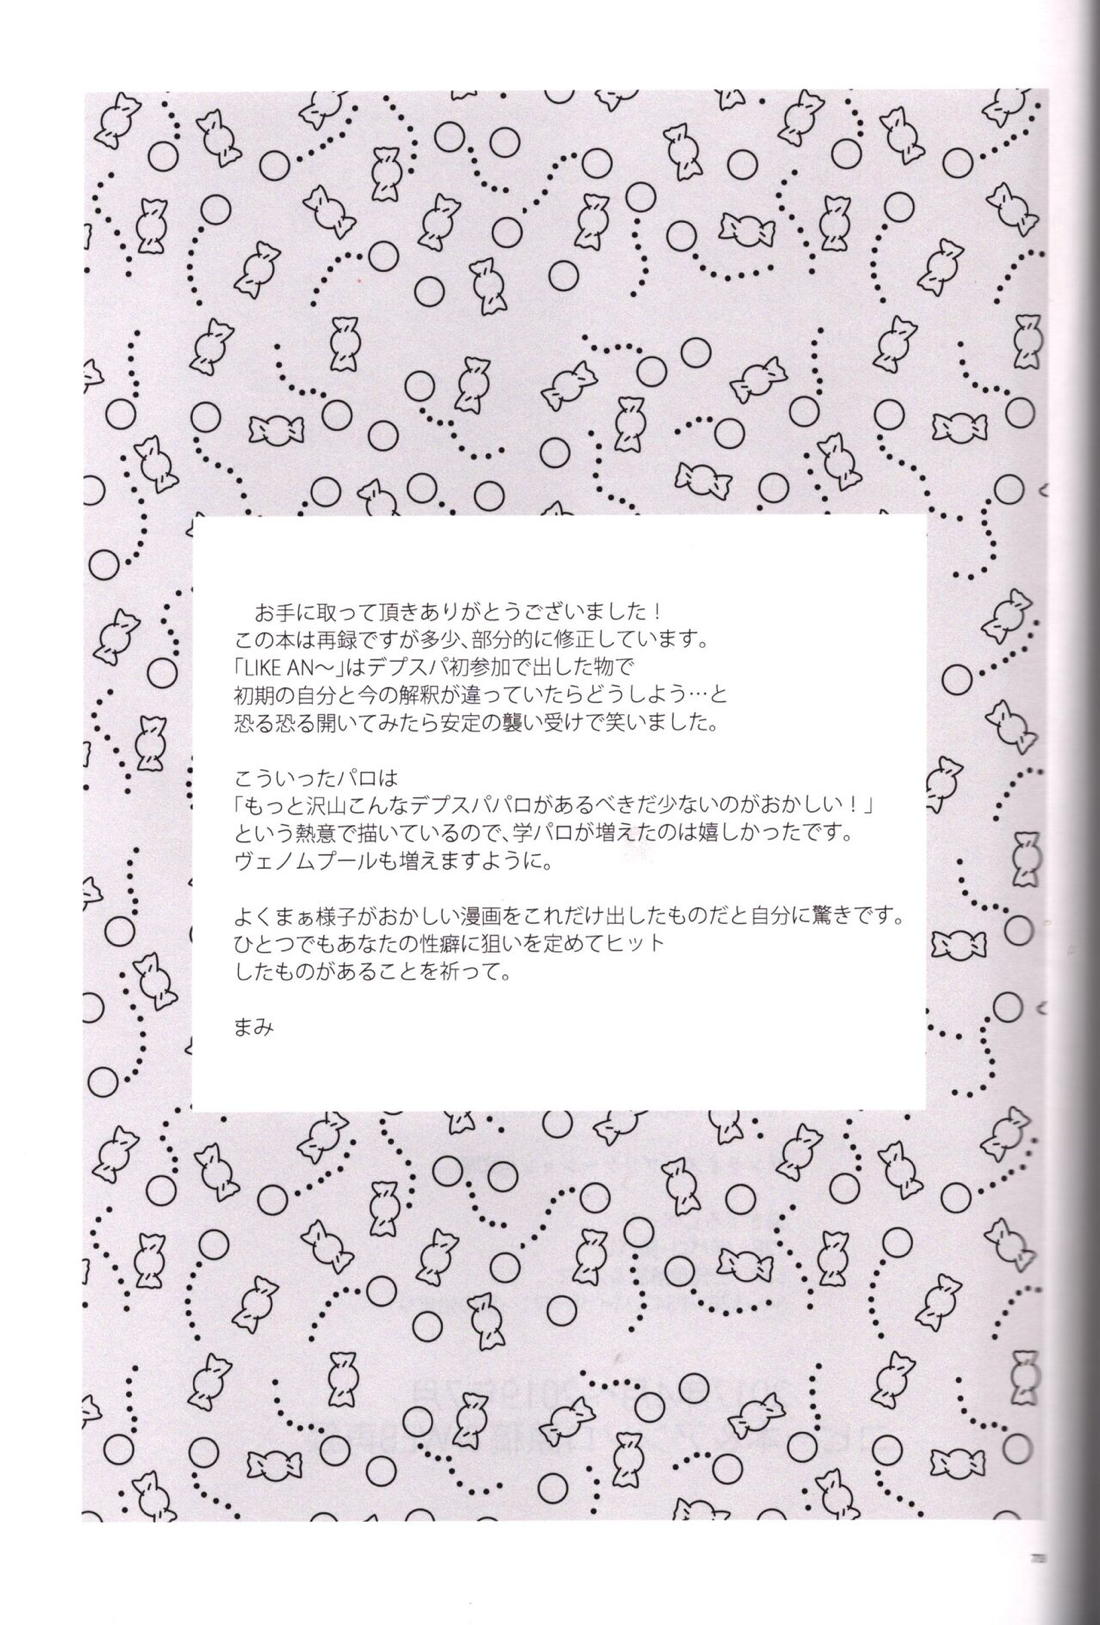 お手に取って頂きありがとうございました！
この本は再録ですが多少、部分的に修正しています。
「LIKE AN〜」はデプスパ初参加で出した物で
初期の自分と今の解釈が違っていたらどうしよう…と
恐る恐る開いてみたら安定の襲い受けで笑いました。
こういったパロは
「もっと沢山こんなデプスパパロがあるべきだ少ないのがおかしい！」
という熱意で描いているので、学パロが増えたのは嬉しかったです。
ヴェノムプールも増えますように。
よくまぁ様子がおかしい漫画をこれだけ出したものだと自分に驚きです。
ひとつでもあなたの性癖に狙いを定めてヒット
したものがあることを祈って。
まみ